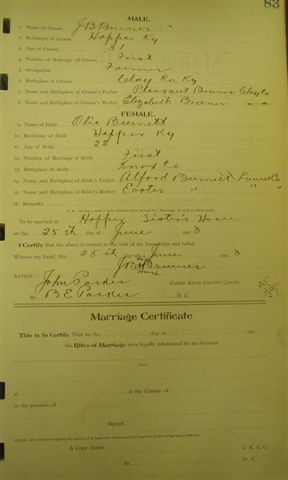 83
MALE.
1. Name of Groom J B Brumer
2. Residence of Groom Hopper Ky
3. Age of Groom 31
4. Number of Marriage of Groom First
5. Occupation Farmer
6. Birthplace of Groom Clay Co. Ky
7. Name and Birthplace of Groom's Father Pleasant Clay Co
8. Name and Birthplace of Groom's Mother Elizabeth
FEMALE.
9. Name of Bride Olie Burnett
10. Residence of Bride Hopper Ky
11. Age of Bride 22
12. Number of Marriage of Bride First
13. Birthplace of Bride Knox Co
14. Name and Birthplace of Bride's Father Alford Burnett Laurel Co
15. Name and Birthplace of Bride's Mother " "
16. Remarks
To be married at Hopper
on the 25th day of June 191 3
I Certify that the above is correct to the best of my knowledge and belief.
Witness my hand, this 25th day of June 191 3
J B Brumer
ATTEST:
John Parker CLERK KNOX COUNTY COURT
By B E Parker D. C.
Marriage Certificate
This is to Certify That on the day of 191
the Rites of Marriage were legally solemnized by me between
AND
at in the County of
in the presence of
Signed,
A Copy Attest: C. K. C. C.
By D. C.